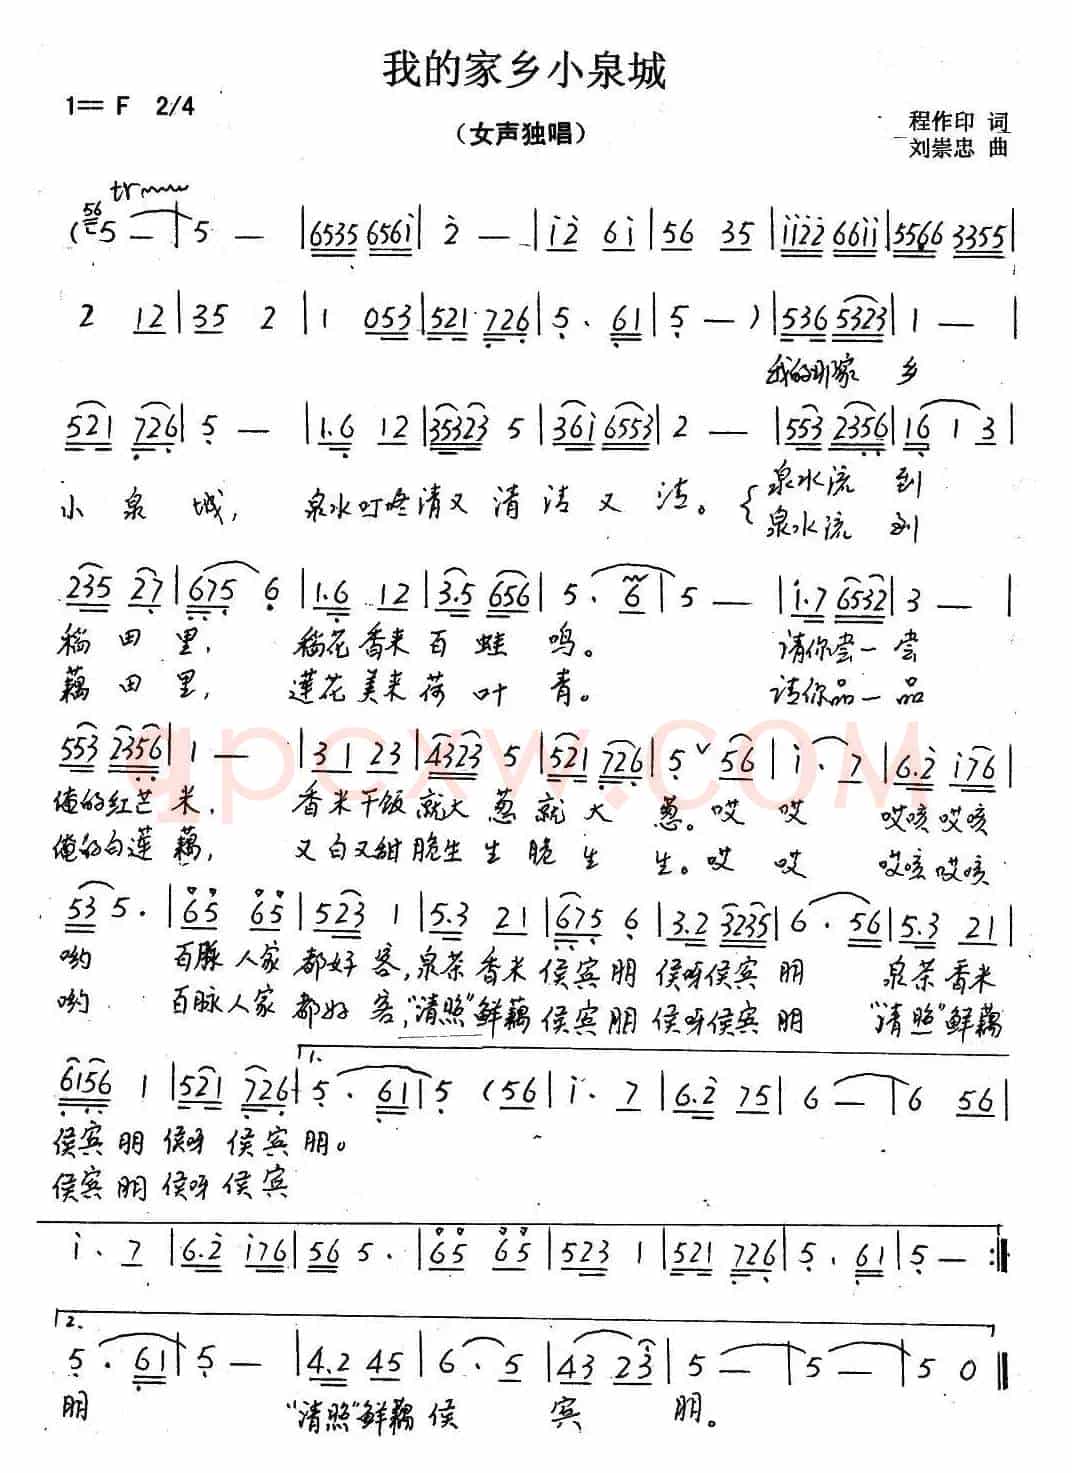 我的家乡小泉城
1== F 2/4
（女声独唱）
程作印 词
刘崇忠 曲
tr
(56 5 — | 5 — | 6535 656i | 2 — | i2 6i | 56 35 | ii22 66ii | 5566 3355 |
2 12 | 35 2 | 1 053 | 521 726 | 5 . 61 | 5 — ) | 536 5323 | 1 — |
我的那家 乡
521 726 | 5 — | 1.6 12 | 35323 5 | 36i 6553 | 2 — | 553 2356 | 16 1 3 |
小 泉 城, 泉水叮咚清又 清 洁 又 洁。 { 泉水流 到
泉水流 到
235 27 | 675 6 | 1.6 12 | 3.5 656 | 5 . 6 | 5 — | i.7 6532 | 3 — |
稻 田 里, 稻花香来百蛙 鸣。 请你尝一尝
藕 田 里, 莲花美来荷叶 青。 请你品一品
553 2356 | 1 — | 31 23 | 4323 5 | 521 726 | 5 ˇ 56 | i . 7 | 6.2 i76 |
俺的红芒 米, 香米干饭就大 葱就 大 葱。哎 哎 哎咳哎咳
俺的白莲 藕, 又白又甜脆生 生 脆 生 生。哎 哎 哎咳哎咳
53 5. | 65 65 | 523 1 | 5.3 21 | 675 6 | 3.2 3235 | 6 . 56 | 5.3 21 |
哟 百脉人家 都好 客,泉茶香米 侯宾朋 侯呀侯宾 朋 泉茶香米
哟 百脉人家 都好 客,“清照”鲜藕 侯宾朋 侯呀侯宾 朋 “清照”鲜藕
1.
6156 1 | 521 726 | 5 . 61 | 5 (56 | i . 7 | 6.2 75 | 6 — | 6 56 |
侯宾 朋 侯呀 侯 宾 朋。
侯宾 朋 侯呀 侯 宾
i . 7 | 6.2 i76 | 56 5 . | 65 65 | 523 1 | 521 726 | 5 . 61 | 5 — :|
2.
5 . 61 | 5 — | 4.2 45 | 6 . 5 | 43 23 | 5 — | 5 — | 5 0 ‖
朋 “清照”鲜藕 侯 宾 朋。
qpcxw.COM